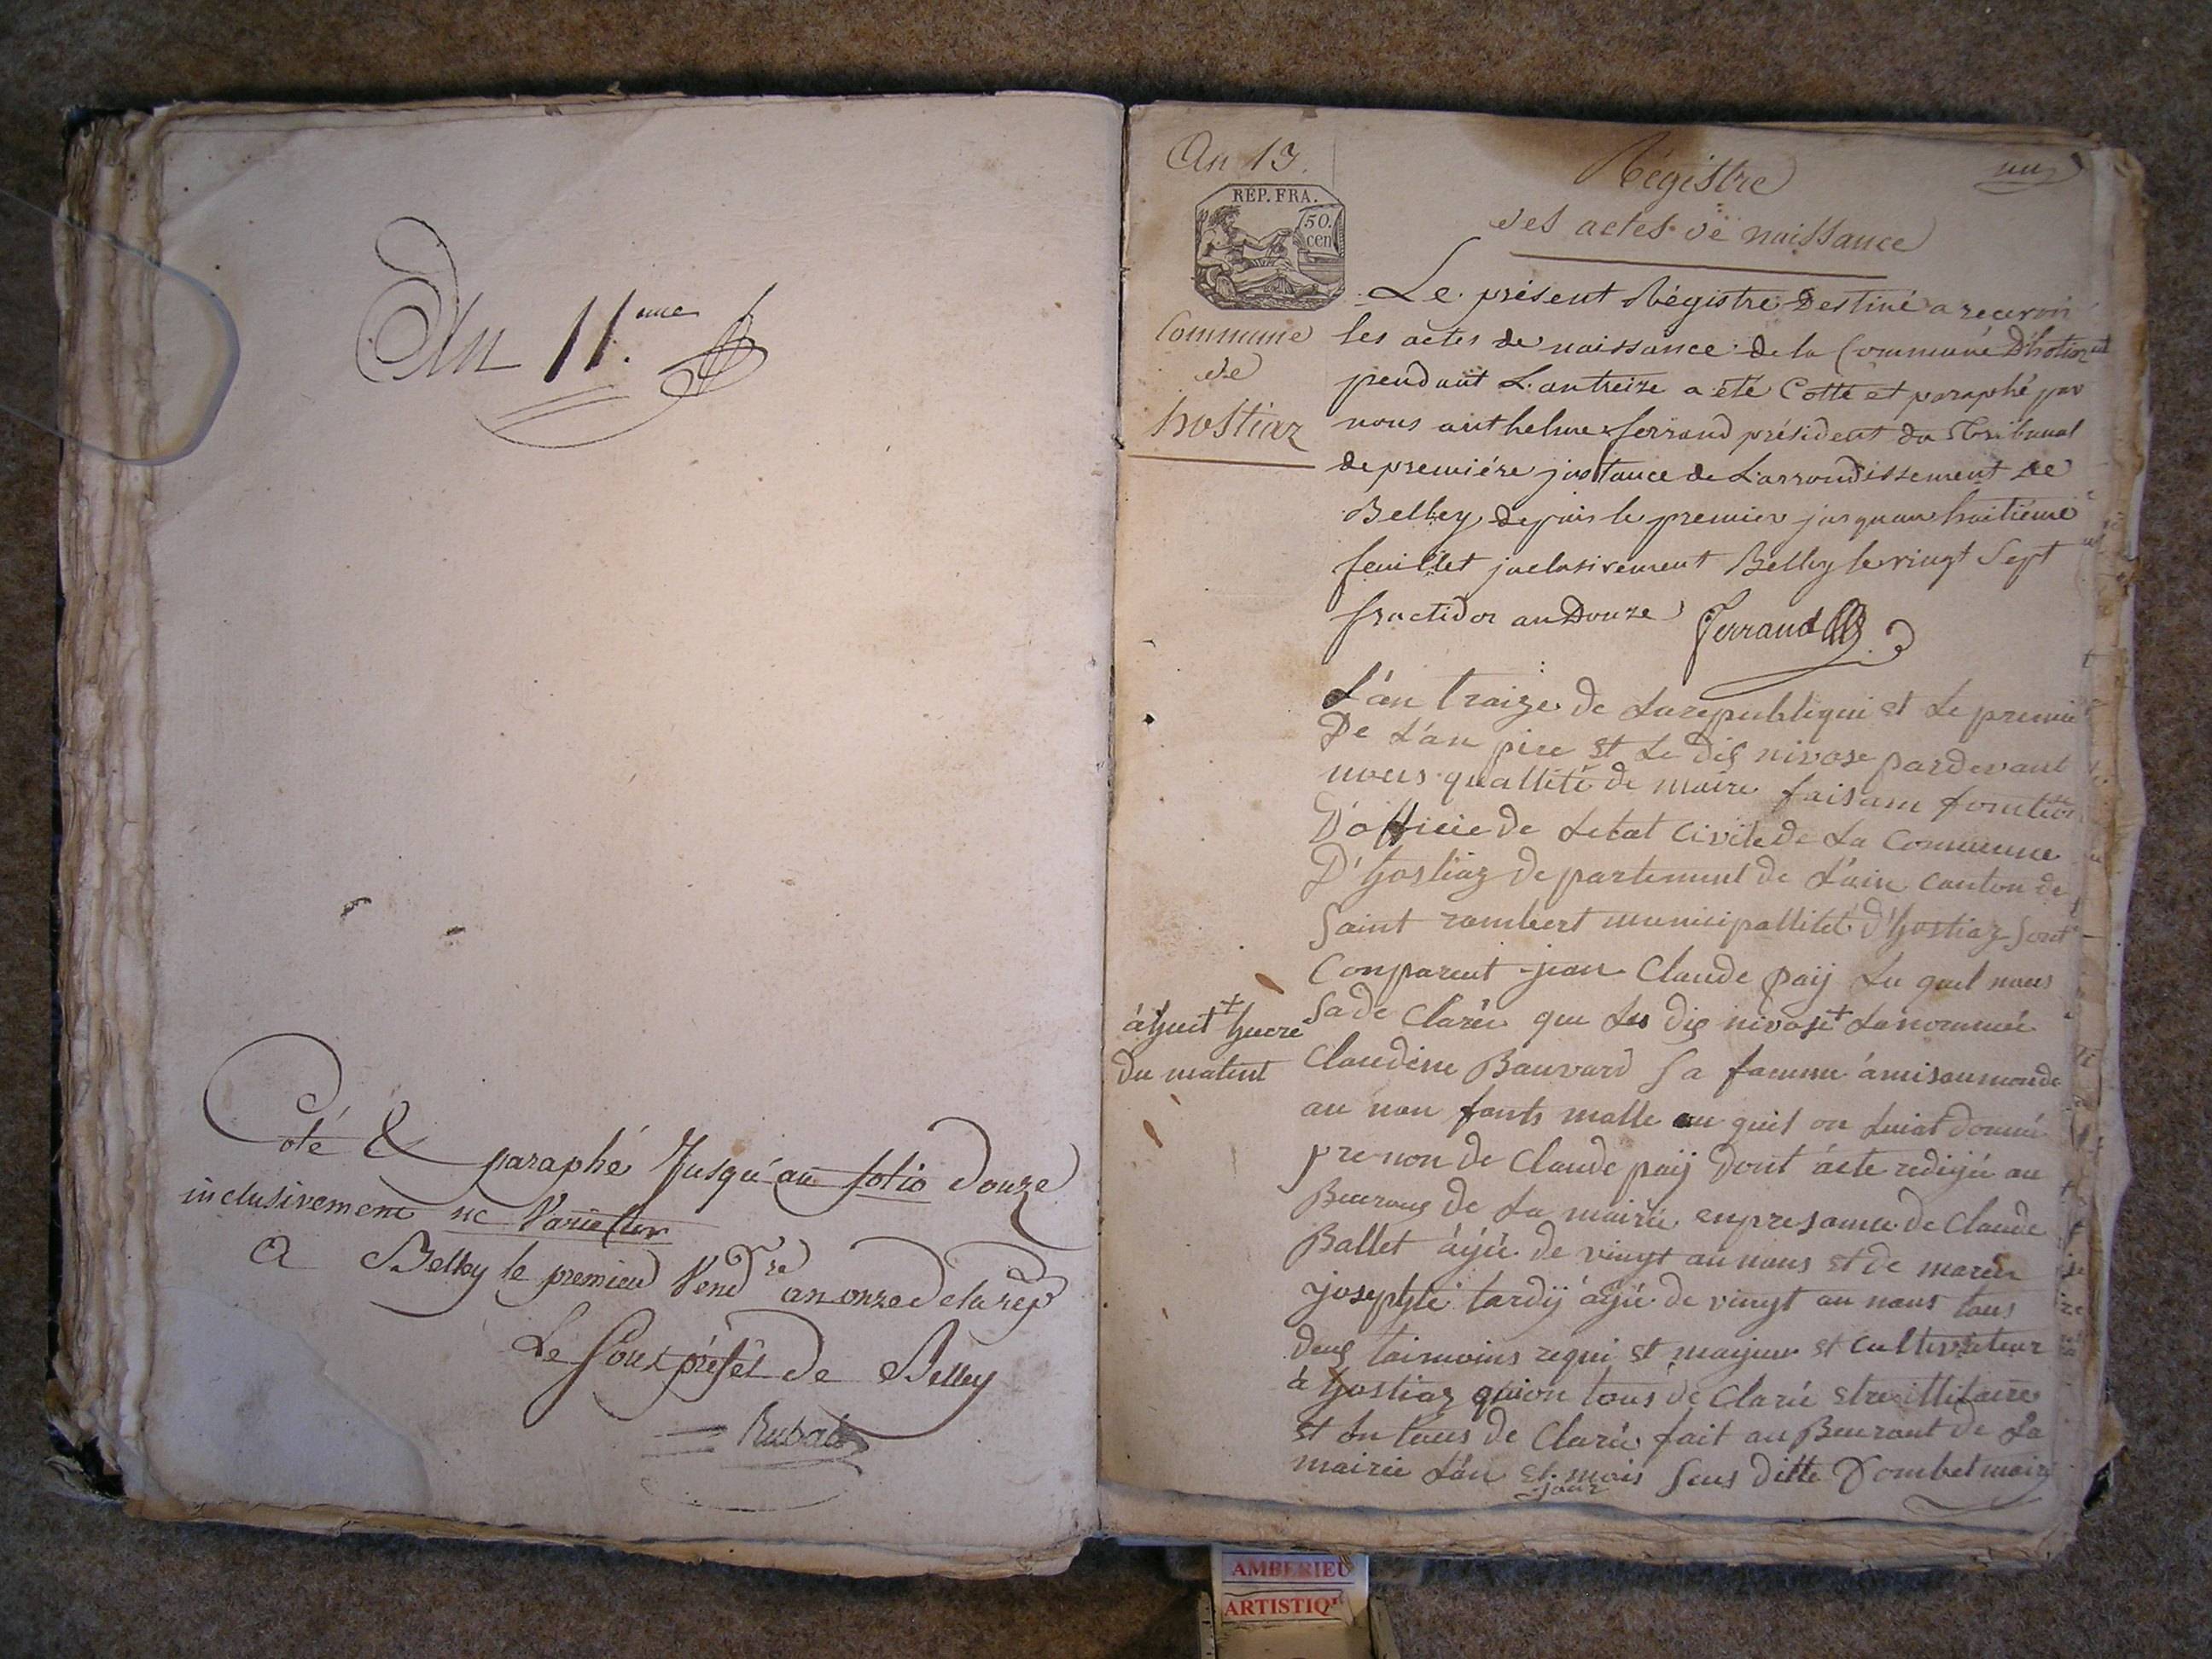 An 11.eme
Coté & paraphé Jusqu'au folio douze
inclusivement ne Varietur
A Belley le premier Vend.re an onze de la rep
Le Sous préfet de Belley
Rubat
An 13.
REP. FRA.
50.
cen
Commune
de
hostiaz
Régistre
des actes de naissance
un
Le présent Régistre Destiné a recevoir
les actes de naissance de la Commune D'hostiaz
pendant L'an treize a été Cotté et paraphé par
nous anthelme ferrand président du tribunal
de premiére jnstance de L'arrondissement de
Belley depuis le premier jusquau huitiéme
feuillet jnclusivement Belley le vingt Sept
fructidor an Douze Ferrand
L'an traize de La republiqui et Le premié
De L'an pire et Le dis nivose pardevant
nous quallité de maire faisam fonction
D'officie de Letat Civile de La Commune
D'hostiaz departement de L'ain canton de
Saint rambert municipallitet d'hostiaz Sont
Conparent jean Claude paij Lu quel nous
Sa de Claréi que Les dis nivose + La nommée
à huit + huere
du matint
Claudine Bauvard Sa famme à mis au monde
au non fants malle au quil on Luiat donné
prenon de Claude paij Dont acte redijé au
Beuraus de La mairie enpresance de Claude
Ballet àjé de vingt au nans et de marie
josephte tardij àjé de vingt au nans tous
deus taimoins requi et majeur et cultivateur
à hostiaz quion tous de Clarié etre illitaire
et on tous de Claré fait au Beuraut de La
mairie L'an et mois Sus ditte Dombet maire
jour
AMBERIEU
ARTISTIQ